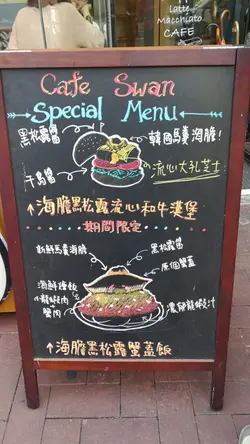 Latte
Macchiato
CAFE
Cafe Swan
Special Menu
黑松露醬
韓國馬糞海膽
千島醬
流心大孔芝士
海膽黑松露流心和牛漢堡
期間限定
新鮮馬糞海膽
黑松露醬
原個蟹蓋
海鮮種飯
小龍蝦肉
蟹肉
濃郁龍蝦汁
海膽黑松露蟹蓋飯